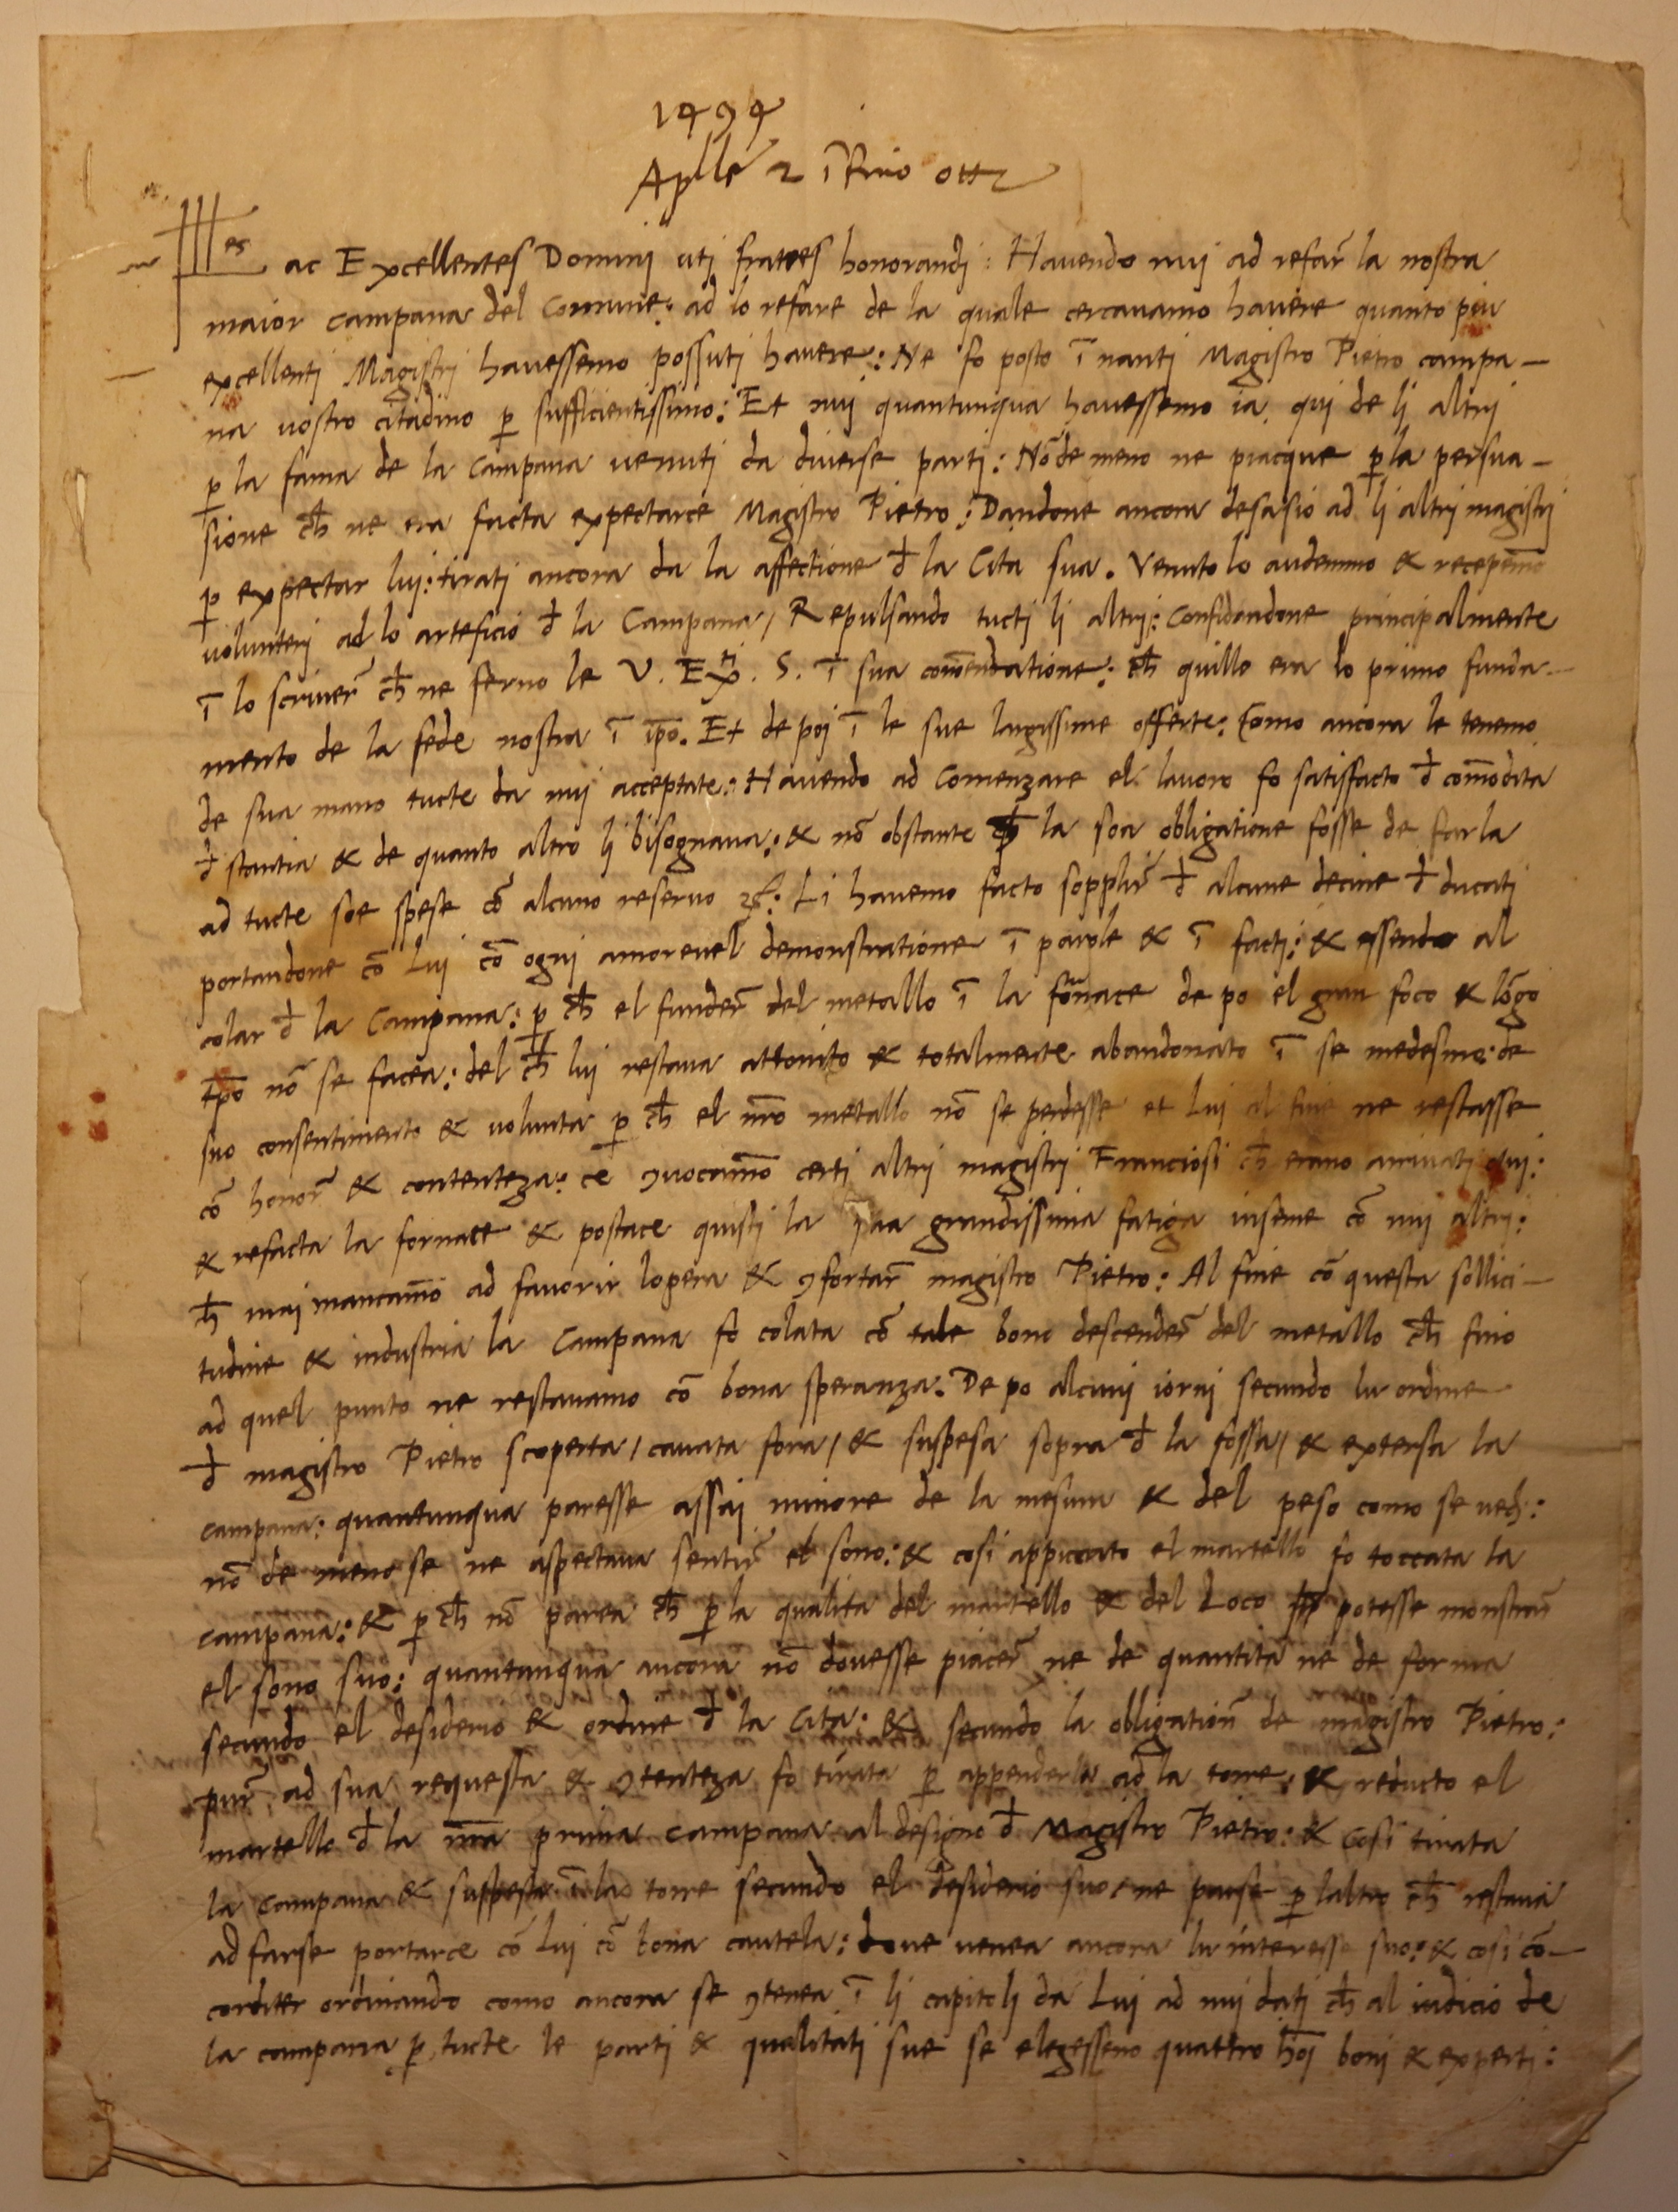 1494
Ill(es) ac Excellentes Dominj uti fratres honorandj : Havendo nuj ad refar̄ la nostra
maior campana del Comune: ad lo refare de la quale cercavamo havere quanto piu
excellenti Magistrj havessemo possutj havere: Ne fo posto ī nanti Magistro Pietro campa-
na vostro citadino p̱ sufficientissimo: Et nuj quantunqua havessemo ia quj de lj altrj
p̱ la fama de la campana venutj da diverse partj: Nō de meno ne piacque p̱ la persua-
sione cħ ne era facta expectarce Magistro Pietro: Dandone ancora desasio ad lj altrj magistrj
p̱ expectar luj: tiratj ancora da la affectione đ la Cita sua. Venuto lo audemmo & recepēmo
volunterj ad lo arteficio đ la Campana / Repulsando tuctj li altrj: Confidandone principalmente
ī lo scriver̄ cħ ne ferno le V. Ex. S. ī sua com̄endatione: cħ quillo era lo primo funda-
mento de la fede nostra ī ip̄o. Et de poj ī le sue largissime offerte: Como ancora le tenemo
de sua mano tucte da nuj acceptate: Havendo ad Comenzare el lavoro fo satisfacto đ com̄odita
đ stantia & de quanto altro lj bisognava: & nō obstante cħ la soa obligatione fosse de farla
ad tucte soe spese cō alcuno reservo : Li havemo facto sopplir̄ đ alcune decine đ ducatj
portandone cō Luj cō ogni amorevel̄ demonstratione ī parole & ī factj: & essendo al
colar đ la Campana: p̱ cħ el funder̄ del metallo ī la fornace de po el gran foco & lōgo
tp̄o nō se facea: del cħ luj restava attonito & totalmente abandonato ī se medesmo: de
suo consentimento & volunta p̱ cħ el nr̄o metallo nō se perdesse et Luj al fine ne restasse
cō honor̄ & contenteza: ce ꝯvocam̄o certj altrj magistrj Franciosi cħ erano arrivatj quj:
& refacta la fornace & postace quistj la grandissima fatiga inseme cō nuj altrj:
cħ maj mancam̄o ad favorir lopera & ꝯfortar̄ magistro Pietro: Al fine cō questa sollici-
tudine & industria la Campana fo colata cō tale bono descender̄ del metallo cħ fino
ad quel punto ne restavamo cō bona speranza. De po alcunj iornj secundo lu ordine
đ magistro Pietro scoperta / cavata fora / & suspesa sopra đ la fossa / & extersa la
campana: quantunqua paresse assaj minore de la mesura & del peso como se ved:
nō de meno se ne aspectava sentir̄ el sono: & cosi appiccato el martello fo toccata la
campana: & p̱ cħ nō parea cħ p̱ la qualita del martello & del Loco potesse monstrar̄
el sono suo: quantunqua ancora nō dovesse piacer̄ ne de quantita ne de forma
secundo el desiderio & ordine đ la Cita: & secundo la obligation̄ de magistro Pietro:
pur̄ ad sua requesta & ꝯtenteza fo tirata p̱ appenderla ad la torre: & reducto el
martello đ la nr̄a prima campana al designo đ Magistro Pietro: & Cosi tirata
la campana & suspesa ī la torre secundo el desiderio suo: ne parse p̱ laltro cħ restava
ad farse portarce cō Luj cō bona cautela: dove venea ancora lu interesse suo: & cosi cō-
corditer ordinando como ancora se ꝯtenea ī li capitolj da Luj ad nuj datj cħ al iudicio de
la campana p̱ tucte le partj & qualitatj sue se elegesseno quattro ho͞j bonj & expertj: